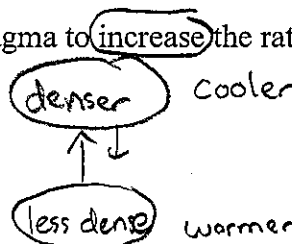 agma to increase the rat
denser cooler
less dense warmer